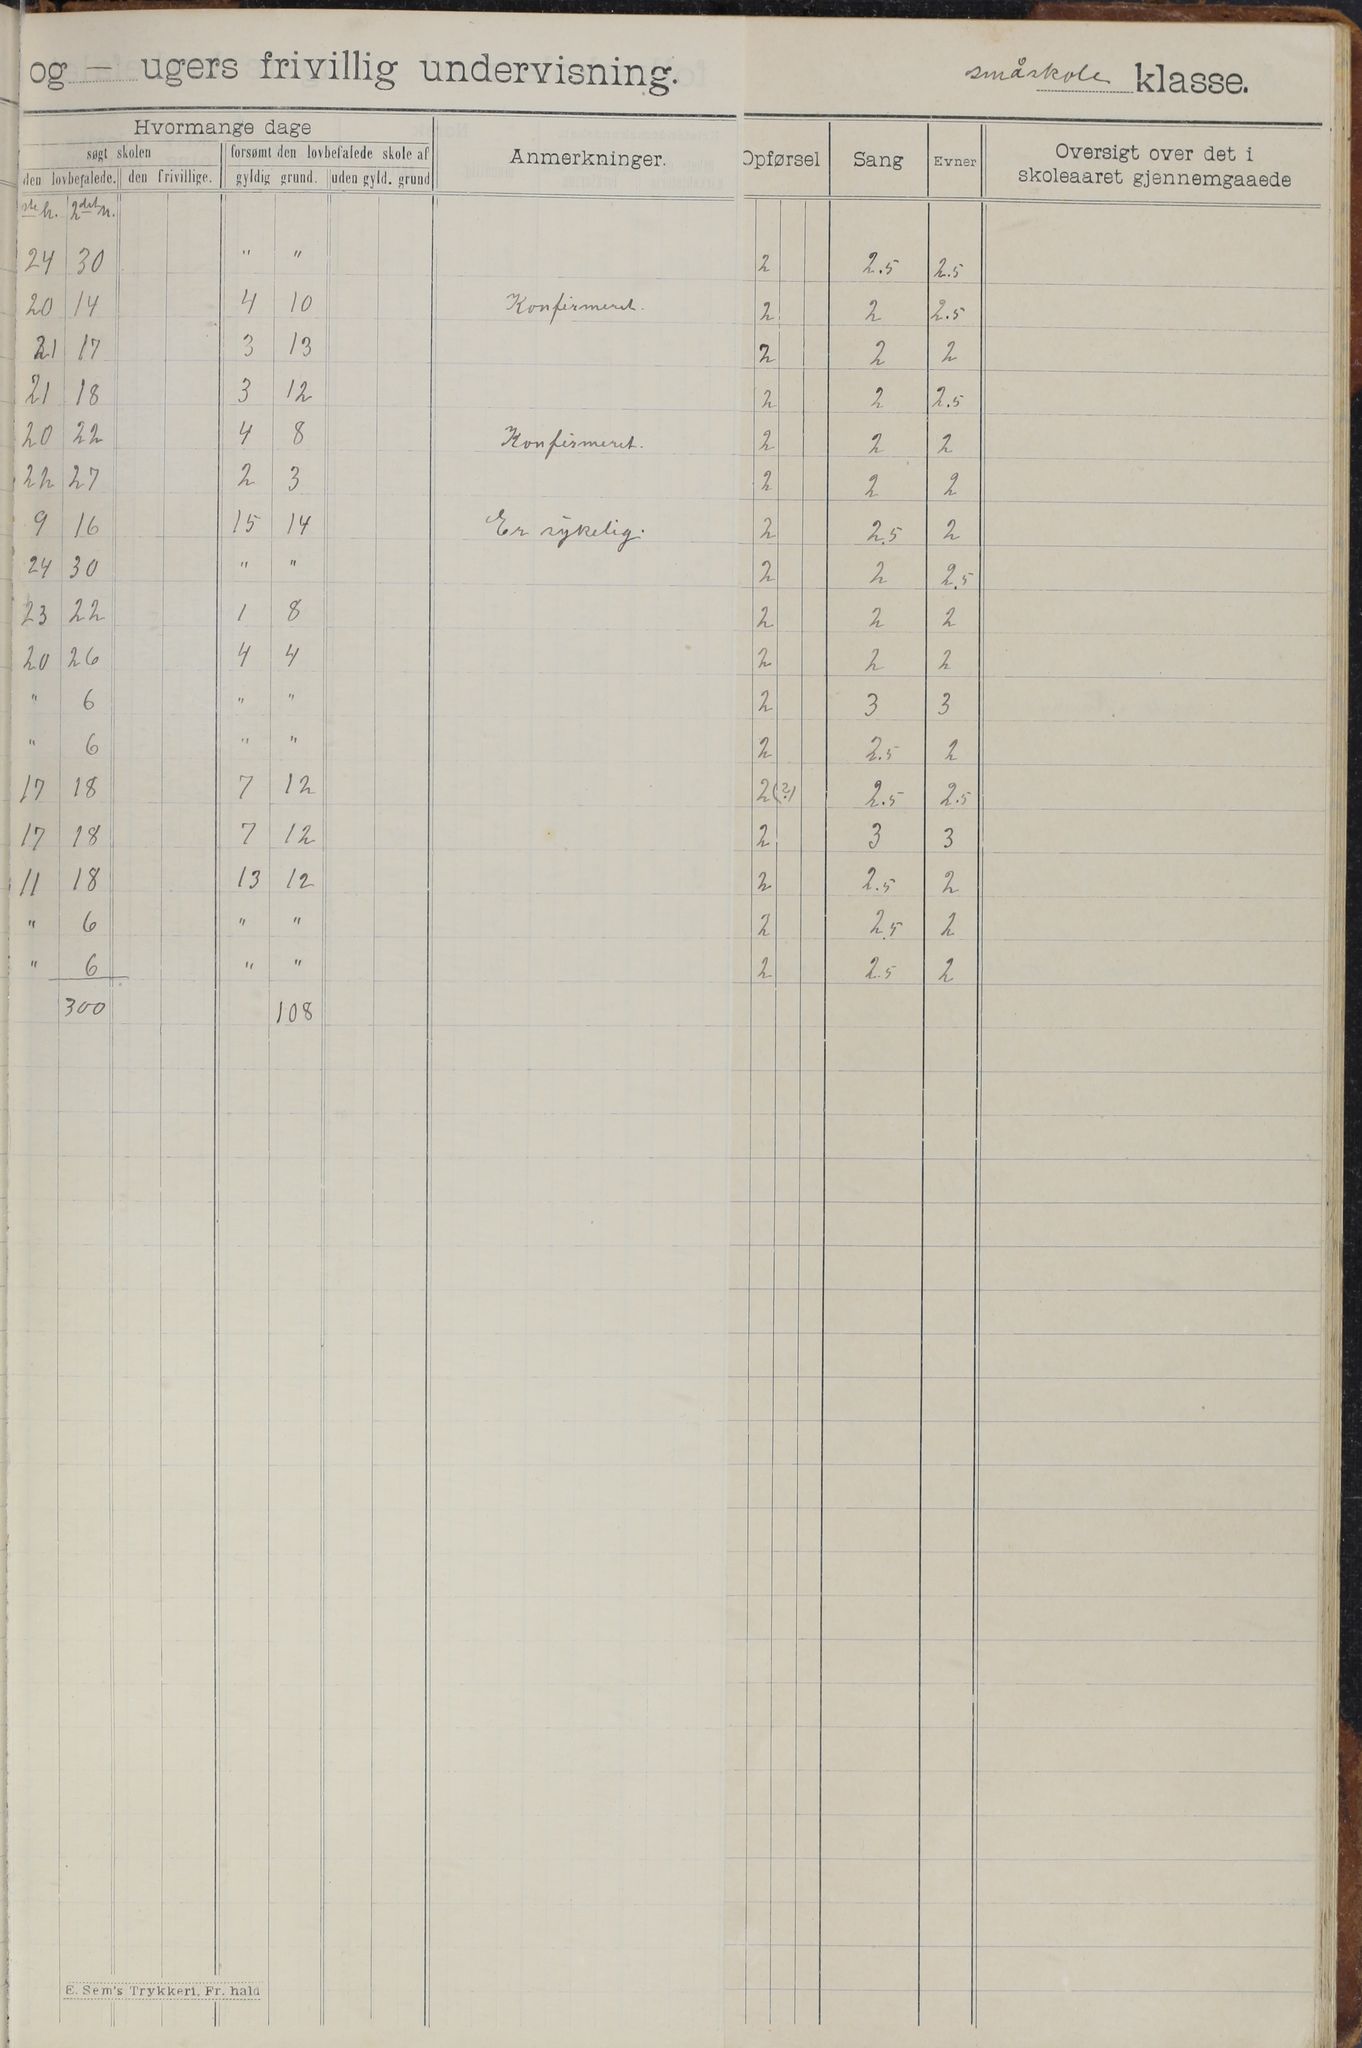 og – ugers frivillig undervisning. småskole klasse.
Hvormange dage
søgt skolen forsømt den lovbefalede skole af Anmerkninger. Opførsel Sang Evner Oversigt over det i
den lovbefalede. den frivillige. gyldig grund. uden gyld. grund skoleaaret gjennemgaaede
ste h. 2det h.
24 30 " " 2 2.5 2.5
20 14 4 10 Konfirmeret. 2 2 2.5
21 17 3 13 2 2 2
21 18 3 12 2 2 2.5
20 22 4 8 Konfirmeret. 2 2 2
22 27 2 3 2 2 2
9 16 15 14 Er sykelig. 2 2.5 2
24 30 " " 2 2 2.5
23 22 1 8 2 2 2
20 26 4 4 2 2 2
" 6 " " 2 3 3
" 6 " " 2 2.5 2
17 18 7 12 2 (?) 2.5 2.5
17 18 7 12 2 3 3
11 18 13 12 2 2.5 2
" 6 " " 2 2.5 2
" 6 " " 2 2.5 2
300 108
E. Sem's Trykkeri, Fr. hald